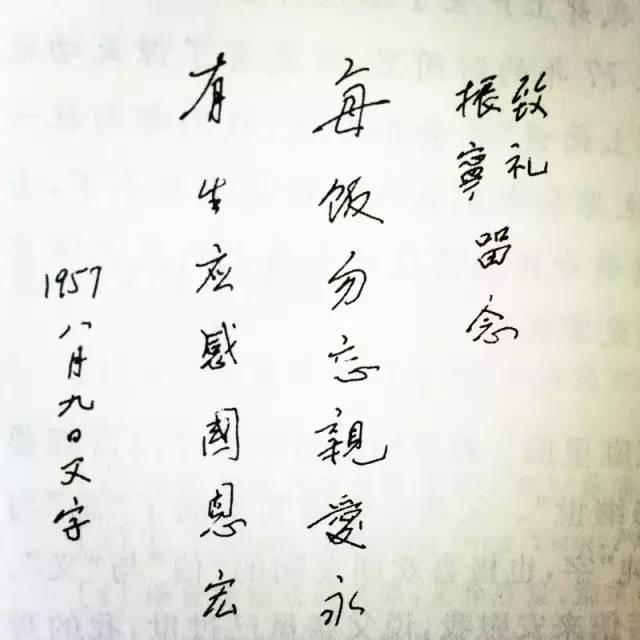 致礼
振寧 留念
每飯勿忘親愛永
有生應感國恩宏
1957 八月九日父字